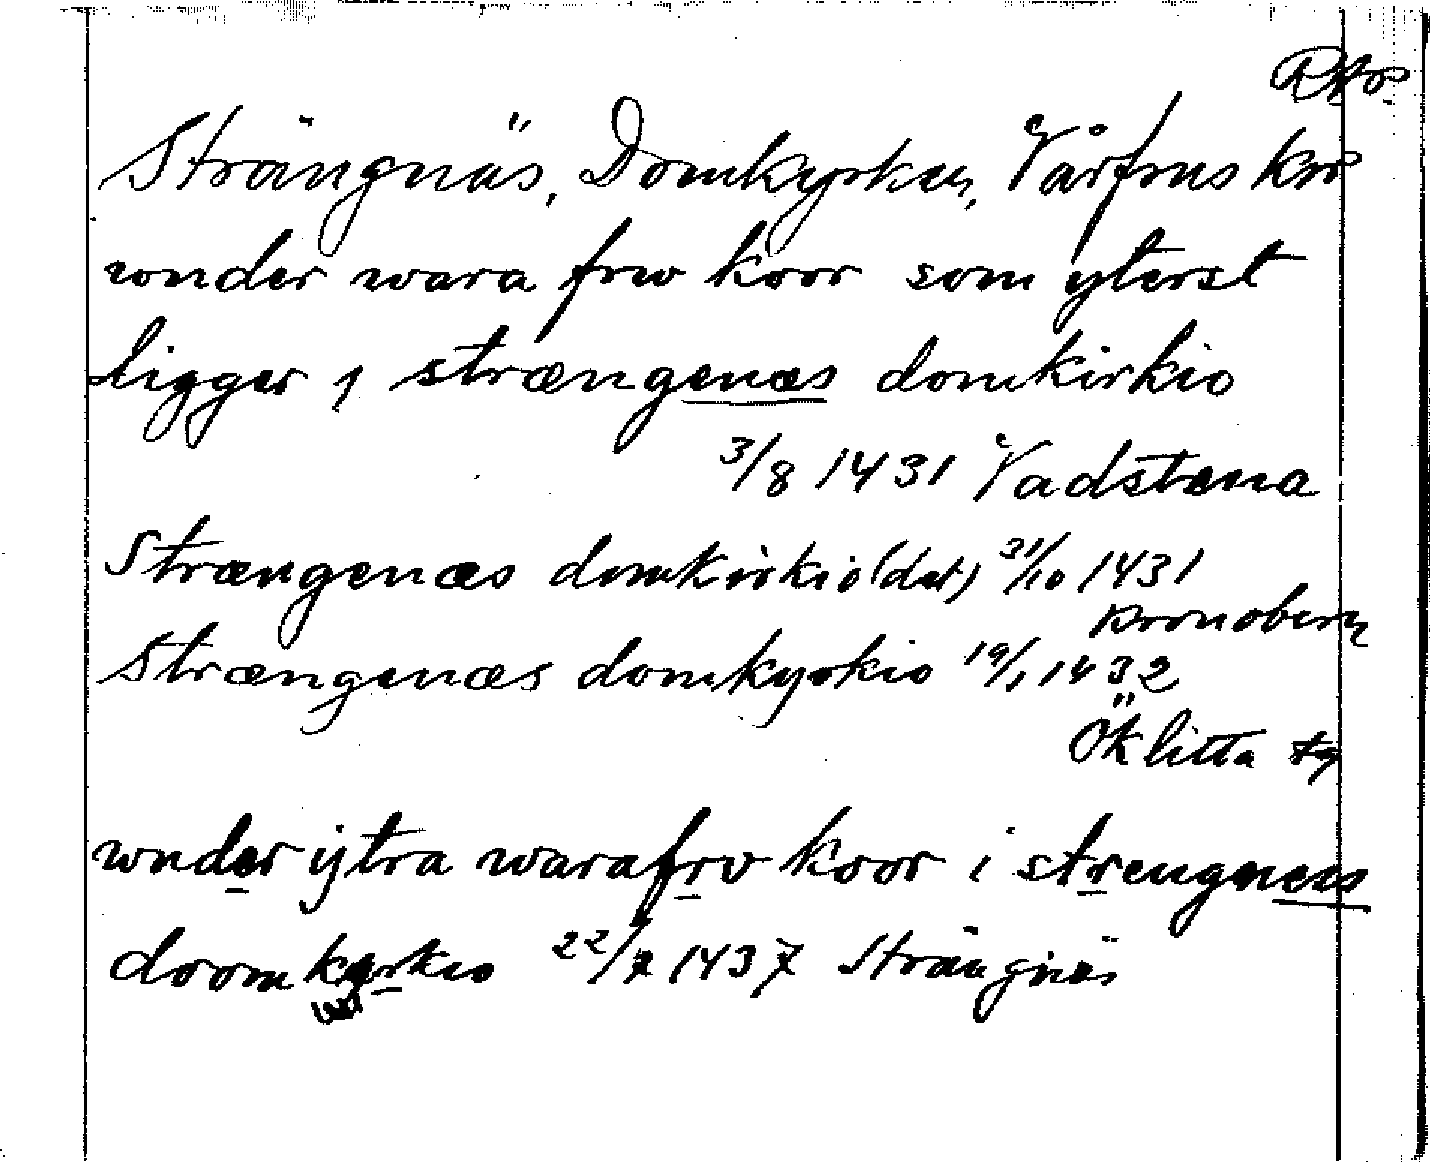 Strängnäs, Domkyrkan, Vårfrus kor
wnder wara frw koor som yterst
ligger j strængenæs domkirkio
3/8 1431 Vadstena
Strængenæs domkirkio (dat) 31/10 1431
Kronoberg
Strængenæs domkyrkio 19/1 1432
Öklitta
wnder ytra warafrv koor i strengenæs
doomkyrkio 22/7 1437 Strängnäs